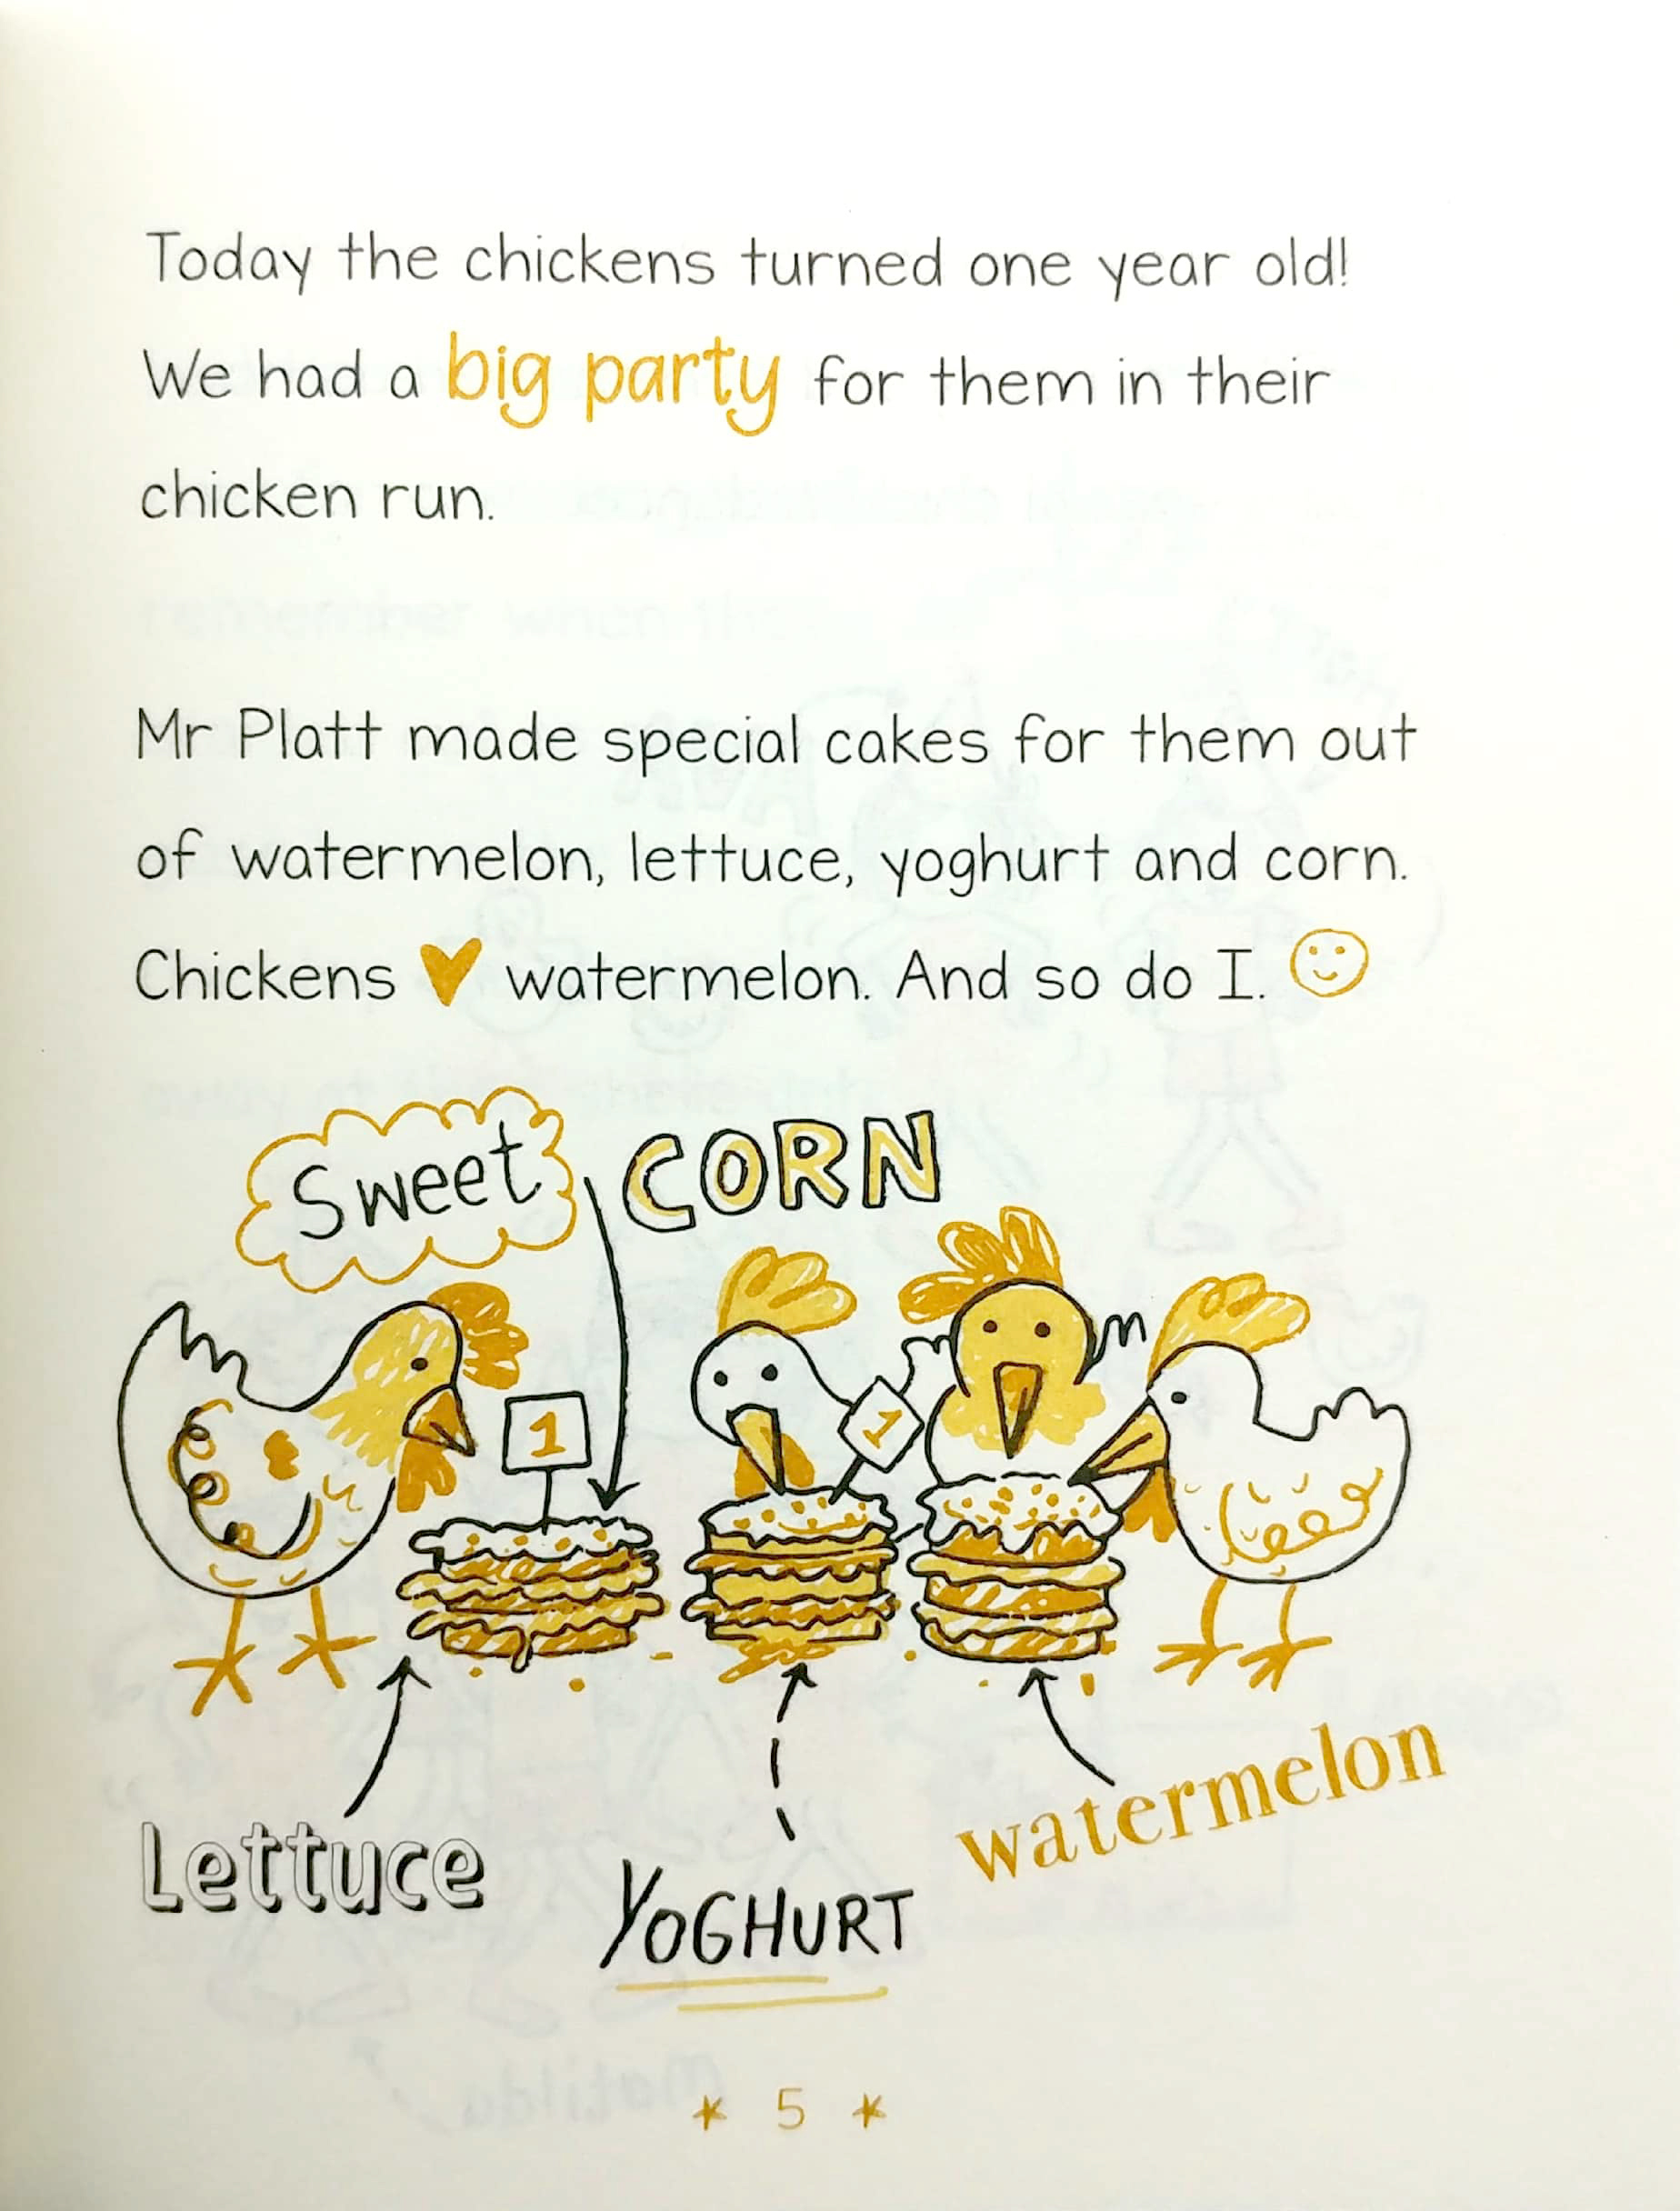 Today the chickens turned one year old!
We had a big party for them in their
chicken run.
Mr Platt made special cakes for them out
of watermelon, lettuce, yoghurt and corn.
Chickens ♥ watermelon. And so do I. ☺
Sweet CORN
1
1
Lettuce
YOGHURT
watermelon
* 5 *